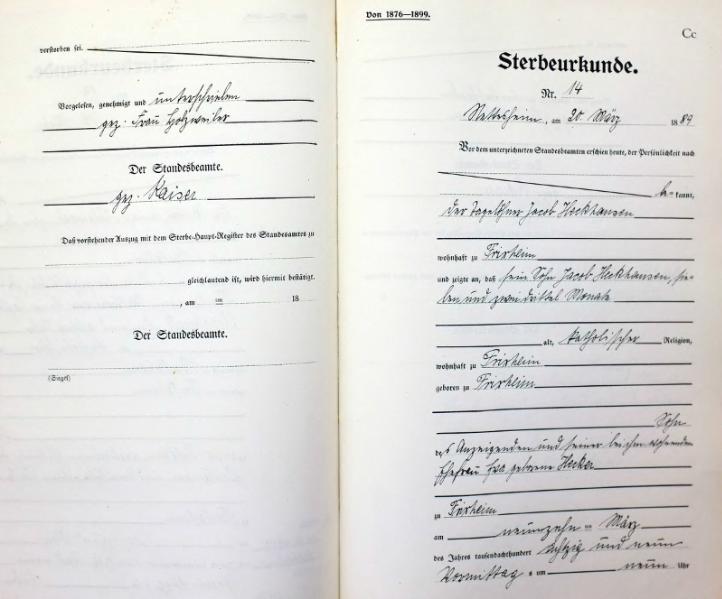 verstorben sei.
Vorgelesen, genehmigt und unterschrieben
gez. Frau Holzweiler
Der Standesbeamte.
gez. Kaiser
Daß vorstehender Auszug mit dem Sterbe-Haupt-Register des Standesamtes zu
gleichlautend ist, wird hiermit bestätigt.
, am ten 18
Der Standesbeamte.
(Siegel)
Von 1876—1899.
Cc
Sterbeurkunde.
Nr. 14
Nettesheim, am 20. März 1889
Vor dem unterzeichneten Standesbeamten erschien heute, der Persönlichkeit nach
be- kannt,
der Tagelöhner Jacob Heckhausen
wohnhaft zu Frixheim
und zeigte an, daß sein Sohn Jacob Heckhausen, sie-
ben und zwei drittel Monate
alt, katholischer Religion,
wohnhaft zu Frixheim
geboren zu Frixheim
Sohn
des Anzeigenden und seiner bei ihm wohnenden
Ehefrau Eva geborene Hecker
zu Frixheim
am neunzehn ten März
des Jahres tausendachthundert achtzig und neun
Vormittag s um neun Uhr